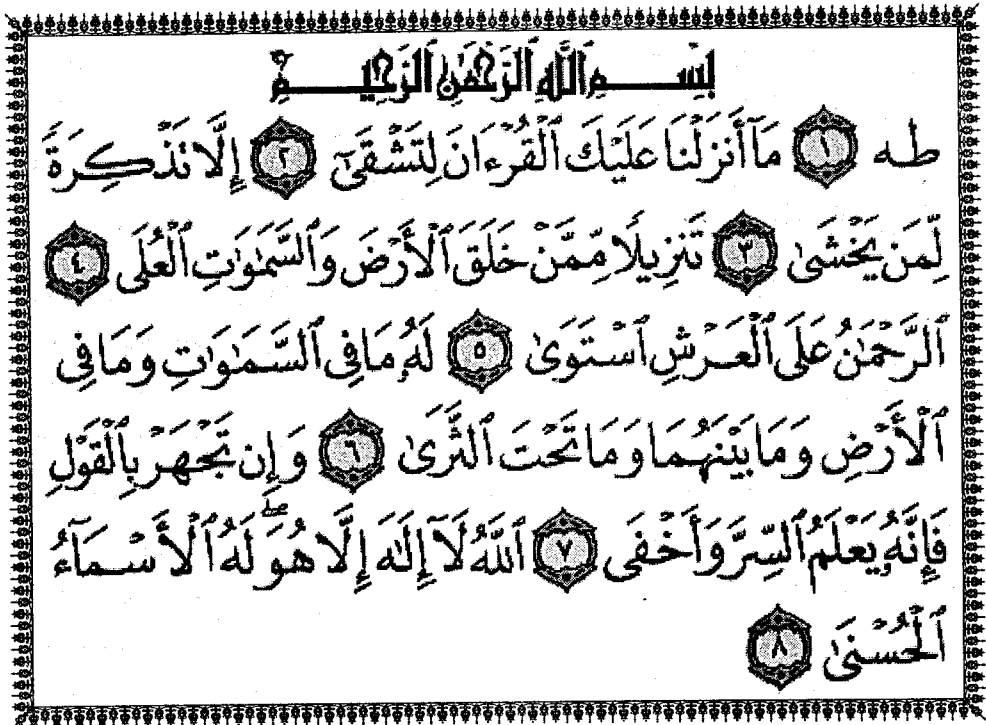 بِسْمِ ٱللَّهِ ٱلرَّحْمَٰنِ ٱلرَّحِيمِ
طه ١ مَآ أَنزَلْنَا عَلَيْكَ ٱلْقُرْءَانَ لِتَشْقَىٰٓ ٢ إِلَّا تَذْكِرَةً
لِّمَن يَخْشَىٰ ٣ تَنزِيلًا مِّمَّنْ خَلَقَ ٱلْأَرْضَ وَٱلسَّمَٰوَٰتِ ٱلْعُلَى ٤
ٱلرَّحْمَٰنُ عَلَى ٱلْعَرْشِ ٱسْتَوَىٰ ٥ لَهُۥ مَا فِى ٱلسَّمَٰوَٰتِ وَمَا فِى
ٱلْأَرْضِ وَمَا بَيْنَهُمَا وَمَا تَحْتَ ٱلثَّرَىٰ ٦ وَإِن تَجْهَرْ بِٱلْقَوْلِ
فَإِنَّهُۥ يَعْلَمُ ٱلسِّرَّ وَأَخْفَى ٧ ٱللَّهُ لَآ إِلَٰهَ إِلَّا هُوَ ۖ لَهُ ٱلْأَسْمَآءُ
ٱلْحُسْنَىٰ ٨